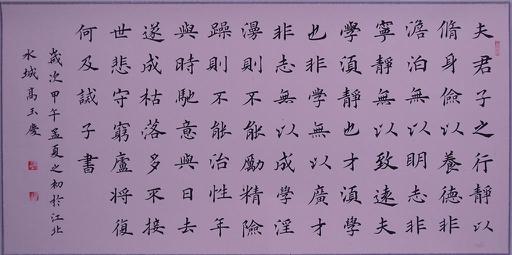 夫君子之行靜以
脩身儉以養德非
澹泊無以明志非
寧靜無以致遠夫
學須靜也才須學
也非學無以廣才
非志無以成學淫
漫則不能勵精險
躁則不能治性年
與時馳意與日去
遂成枯落多不接
世悲守窮廬將復
何及誡子書
歲次甲午孟夏之初於江北
水城高玉慶